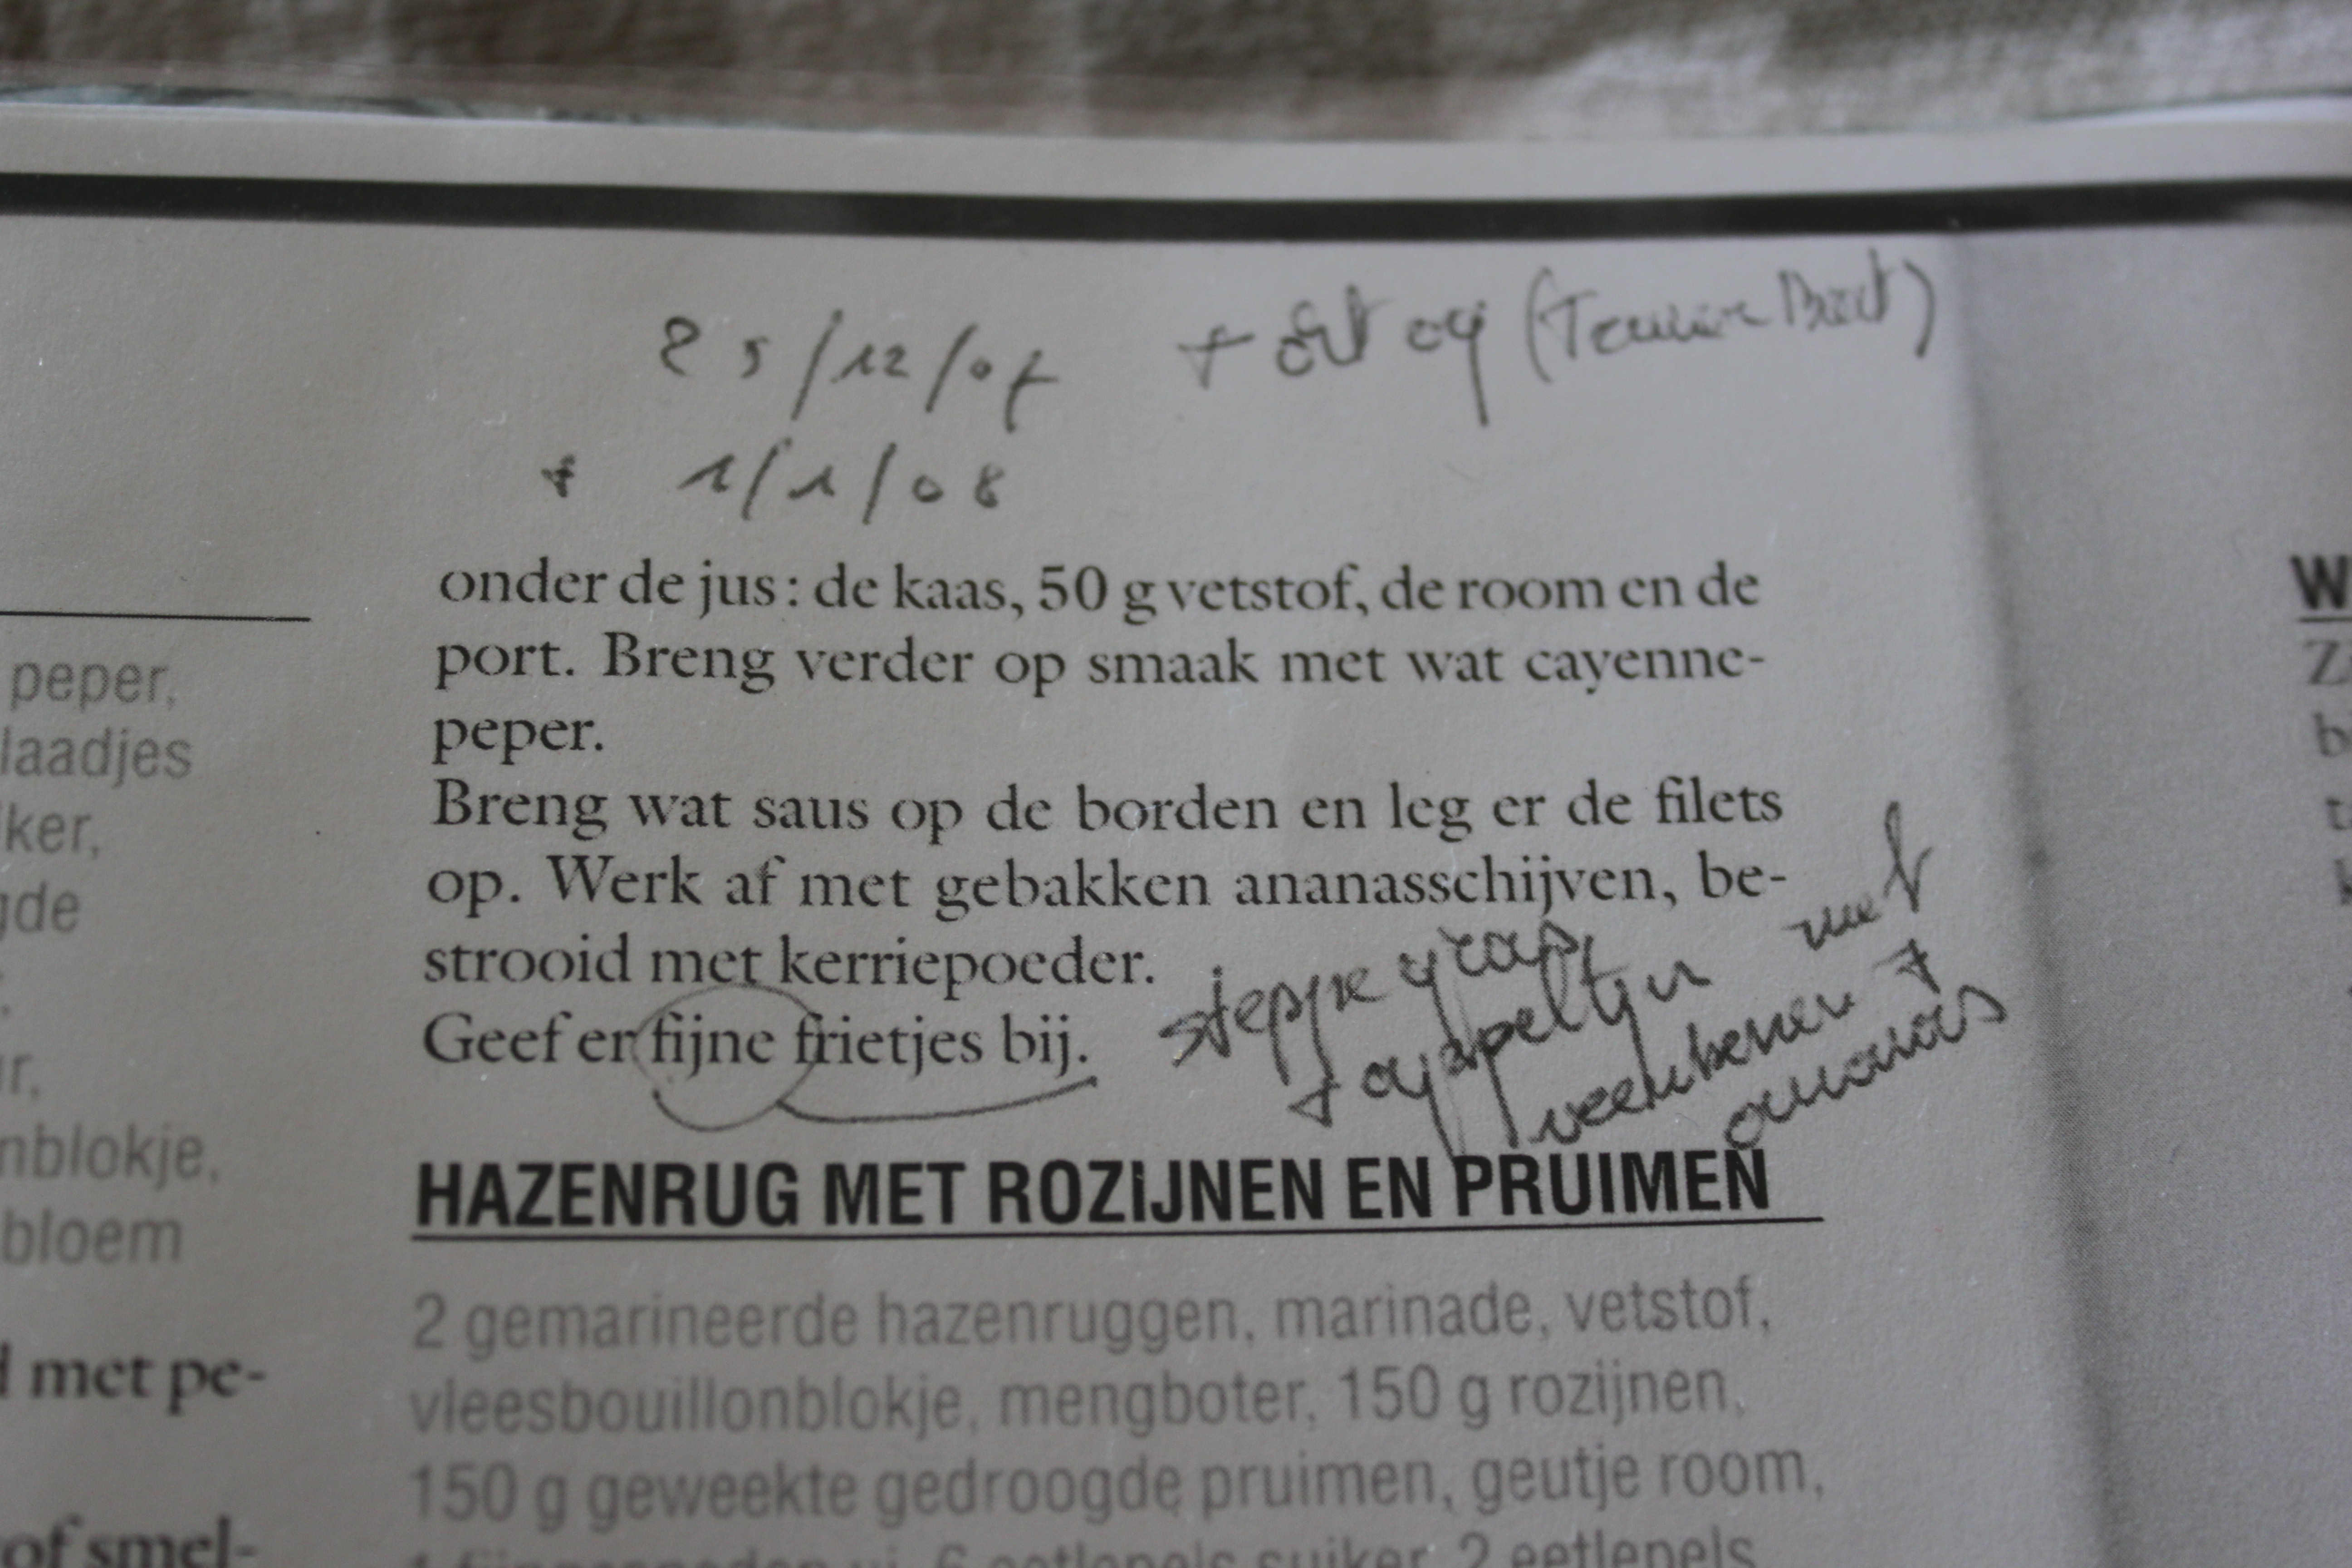 25/12/07
+ 1/1/08
onder de jus: de kaas, 50 g vetstof, de room en de
port. Breng verder op smaak met wat cayenne-
peper.
Breng wat saus op de borden en leg er de filets
op. Werk af met gebakken ananasschijven, be-
strooid met kerriepoeder.
Geef er fijne frietjes bij.
steppegras
+ appeltjes met
veenbessen +
ananas
HAZENRUG MET ROZIJNEN EN PRUIMEN
2 gemarineerde hazenruggen, marinade, vetstof,
vleesbouillonblokje, mengboter, 150 g rozijnen,
150 g geweekte gedroogde pruimen, geutje room,
1 fijngesneden ui, 6 eetlepels suiker, 2 eetlepels
peper,
laadjes
ker,
gde
r,
nblokje,
bloem
met pe-
of smel-
W